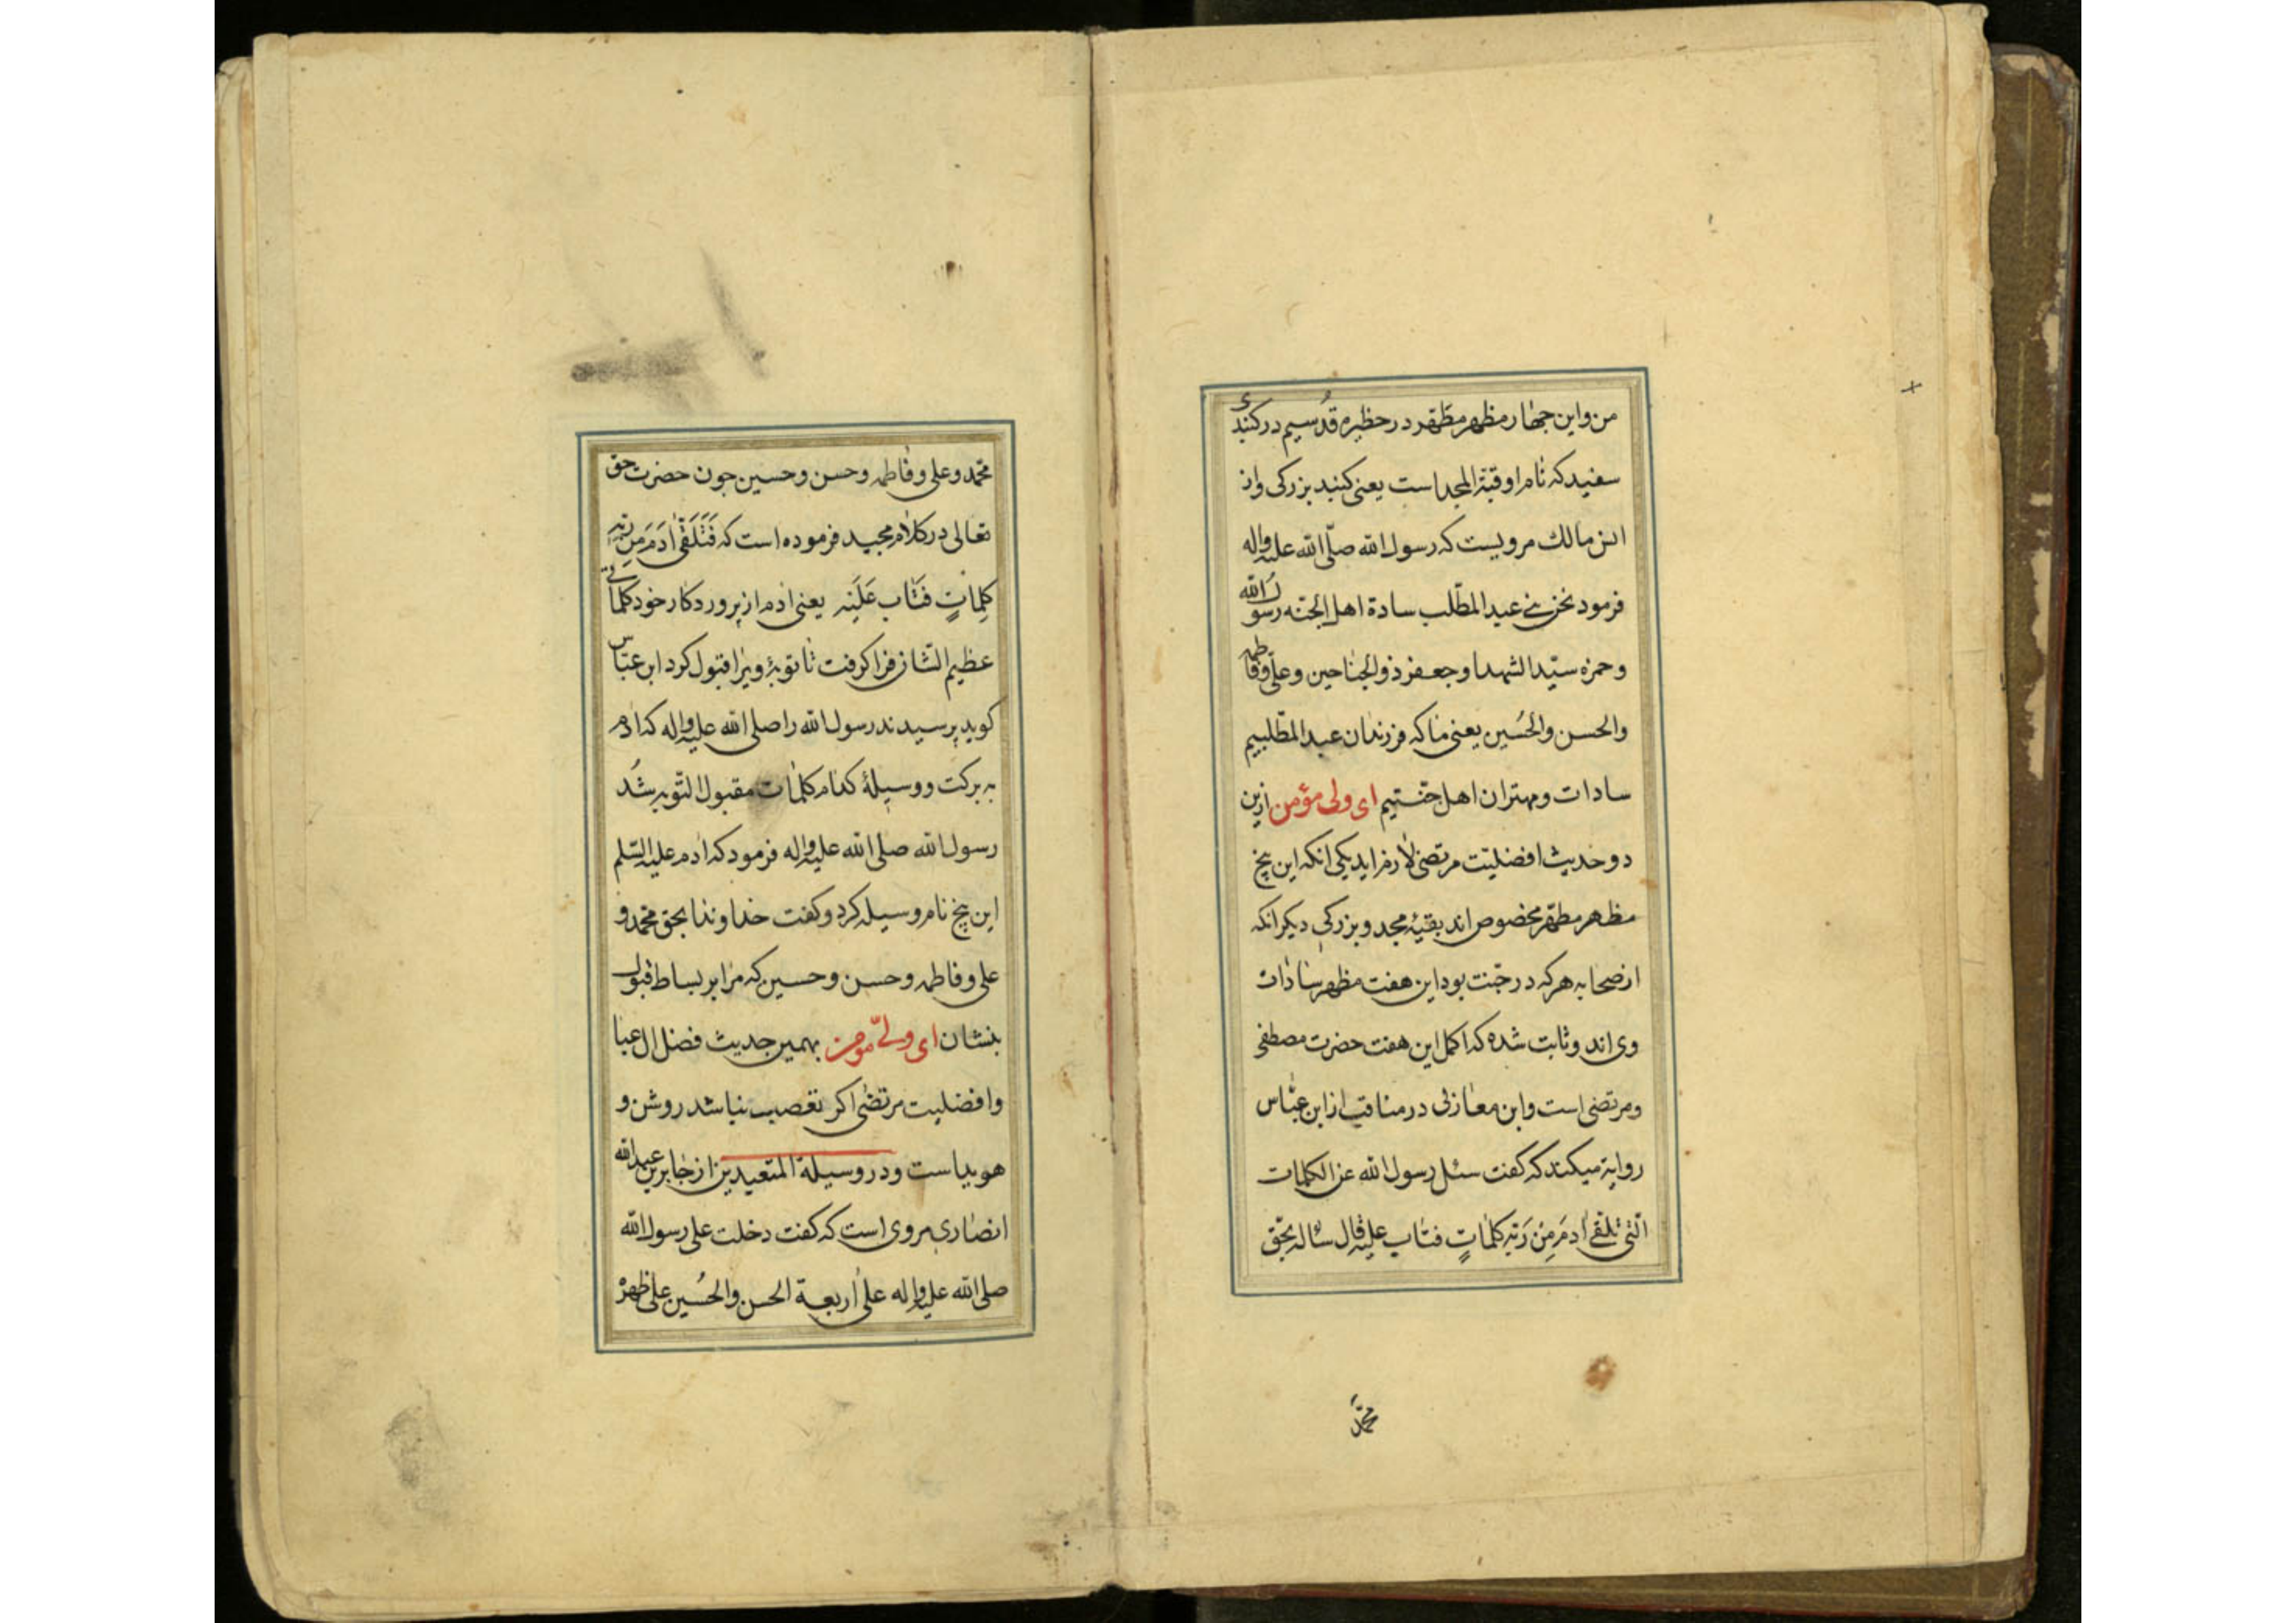 من واین جهار مظهر مطهر در حظیره قدسیم در کنبدی
سفید که نام او قبة المجد است یعنی کنبد بزرکی واز
انس مالک مرویست که رسول الله صلّی الله علیه واله
فرمود نحن بنی عبد المطّلب سادة اهل الجنّه رسول الله
وحمزه سیّد الشهدا وجعفر ذو الجناحین وعلّی وفاطمه
والحسن والحُسین یعنی ما که فرزندان عبد المطّلبیم
سادات ومهتران اهل جنّتیم ای ولی مؤمن ازین
دو حدیث افضلیّت مرتضی لازم اید یکی انکه این پنج
مظهر مطهّر مخصوص اند بقبّهٔ مجد و بزرکی دیکر انکه
از صحابه هر که در جنّت بود این هفت مظهر سادات
وی اند وثابت شده که اکمل این هفت حضرت مصطفی
ومرتضی است وابن مغازلی در مناقب از ابن عبّاس
روایة میکند که کفت سئل رسول الله عن الکلمات
الّتی تلقّی ادمَ مِنْ رَبّه کلماتٍ فتاب علیه قال سأله بحّق
محمّد
محمّد وعلی وفاطمه وحسن وحسین جون حضرت حق
تعالی در کلام مجید فرموده است که فَتَلَقّی ادَمَ مِنْ رَبّهِ
کلِماتٍ فَتٰاب عَلَیه یعنی ادم از پروردکار خود کلماتی
عظیم الشّان فرا کرفت تا توبهٔ ویرا قبول کرد ابن عبّاس
کوید پرسیدند رسول الله را صلی الله علیه واله که ادم
به برکت و وسیلهٔ کدام کلمات مقبول التّوبه شد
رسول الله صلی الله علیه واله فرمود که ادم علیه السّلم
این پنج نام وسیله کرد وکفت خداوندا بحق محمّد و
علی وفاطمه وحسن وحسین که مرا بر بساط قبول
بنشان ای ولیّ مومن بهمین حدیث فضل ال عبا
وافضلیت مرتضی اکر تعصب نباشد روشن و
هویداست ودر وسیلة المتعبدین از جابر بن عبد الله
انصاری مروی است که کفت دخلت علی رسول الله
صلی الله علیه واله علی أربعة الحسن والحُسین علی ظهره